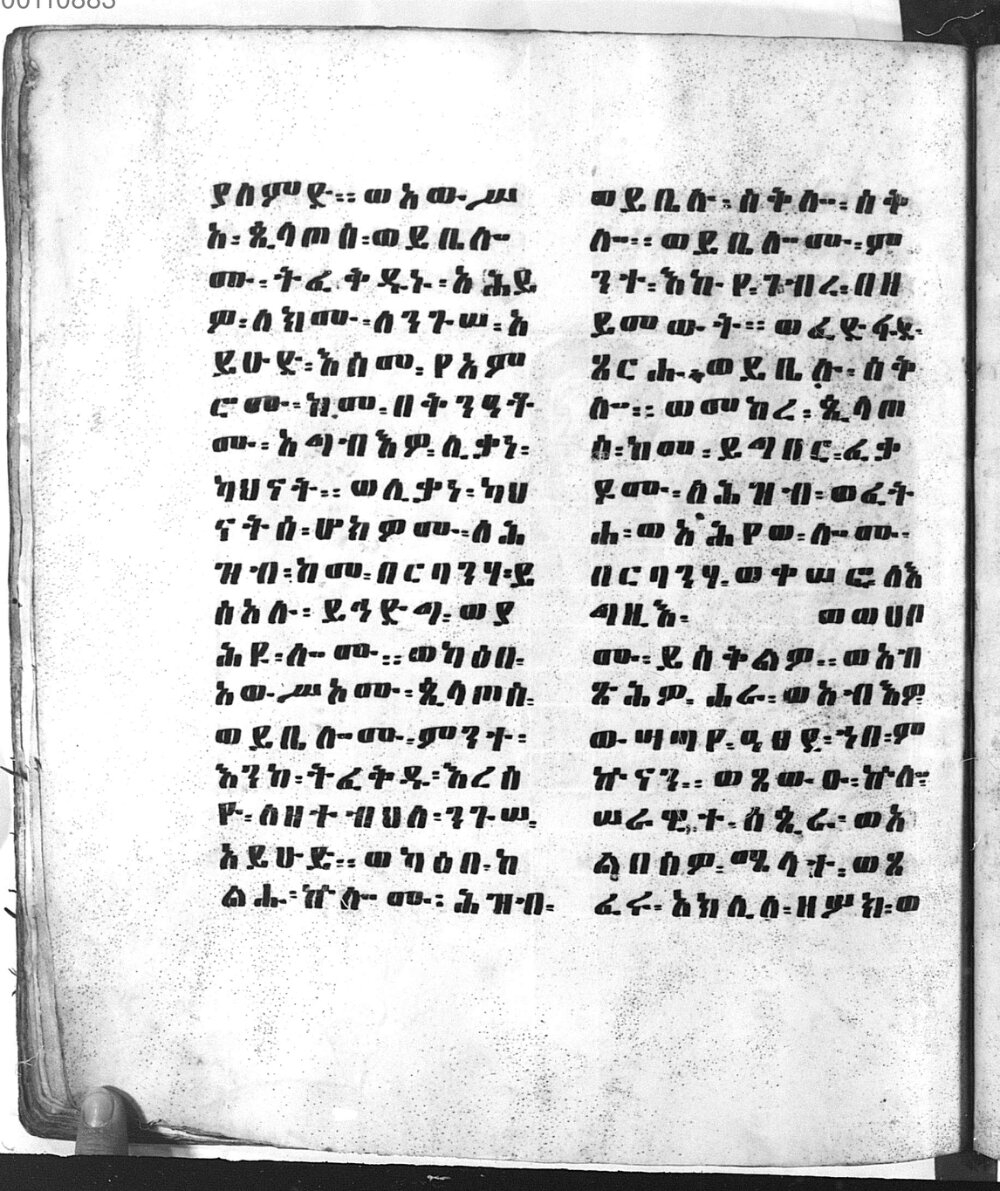 00110883
ያለምድ፡፡ወአውሥ
አ፡ጲላጦስ፡ወይቤሎ
ሙ፡ትፈቅዱኑ፡አሕይ
ዎ፡ለክሙ፡ለንጉሠ፡አ
ይሁድ፡እስመ፡የአም
ሮሙ፡ከመ፡በትንዓቶ
ሙ፡አግብእዎ፡ሊቃነ፡
ካህናት፡፡ወሊቃነ፡ካህ
ናትሰ፡ሆክዎሙ፡ለሕ
ዝብ፡ከመ፡በርባንሃ፡ይ
ስአሉ፡ይኅድግ፡ወያ
ሕዩ፡ሎሙ፡፡ወካዕበ፡
አውሥአሙ፡ጲላጦስ፡
ወይቤሎሙ፡ምንተ፡
እንከ፡ትፈቅዱ፡እረሰ
ዮ፡ለዘተብህለ፡ንጉሠ፡
አይሁድ፡፡ወካዕበ፡ከ
ልሑ፡ኵሎሙ፡ሕዝብ፡
ወይቤሉ፡ስቅሎ፡ስቅ
ሎ፡፡ወይቤሎሙ፡ም
ንተ፡እኩየ፡ገብረ፡በዘ
ይመውት፡፡ወፈድፋደ፡
ጸርሑ፡ወይቤሉ፡ስቅ
ሎ፡፡ወመከረ፡ጲላጦ
ስ፡ከመ፡ይግበር፡ፈቃ
ዶሙ፡ለሕዝብ፡ወፈት
ሐ፡ወአሕየወ፡ሎሙ፡
በርባንሃ፡ወቀሠፎ፡ለእ
ግዚእ፡ ወወሀቦ
ሙ፡ይስቅልዎ፡፡ወአገ
ጽሕዎ፡ሐራ፡ወአብእዎ
ውሣጣየ፡ዓፀድ፡ኀበ፡ም
ኵናን፡፡ወጸውዑ፡ኵሎ፡
ሠራዊተ፡ሰጲራ፡ወአ
ልበስዎ፡ሜላተ፡ወጸ
ፈሩ፡አክሊለ፡ዘሦክ፡ወ